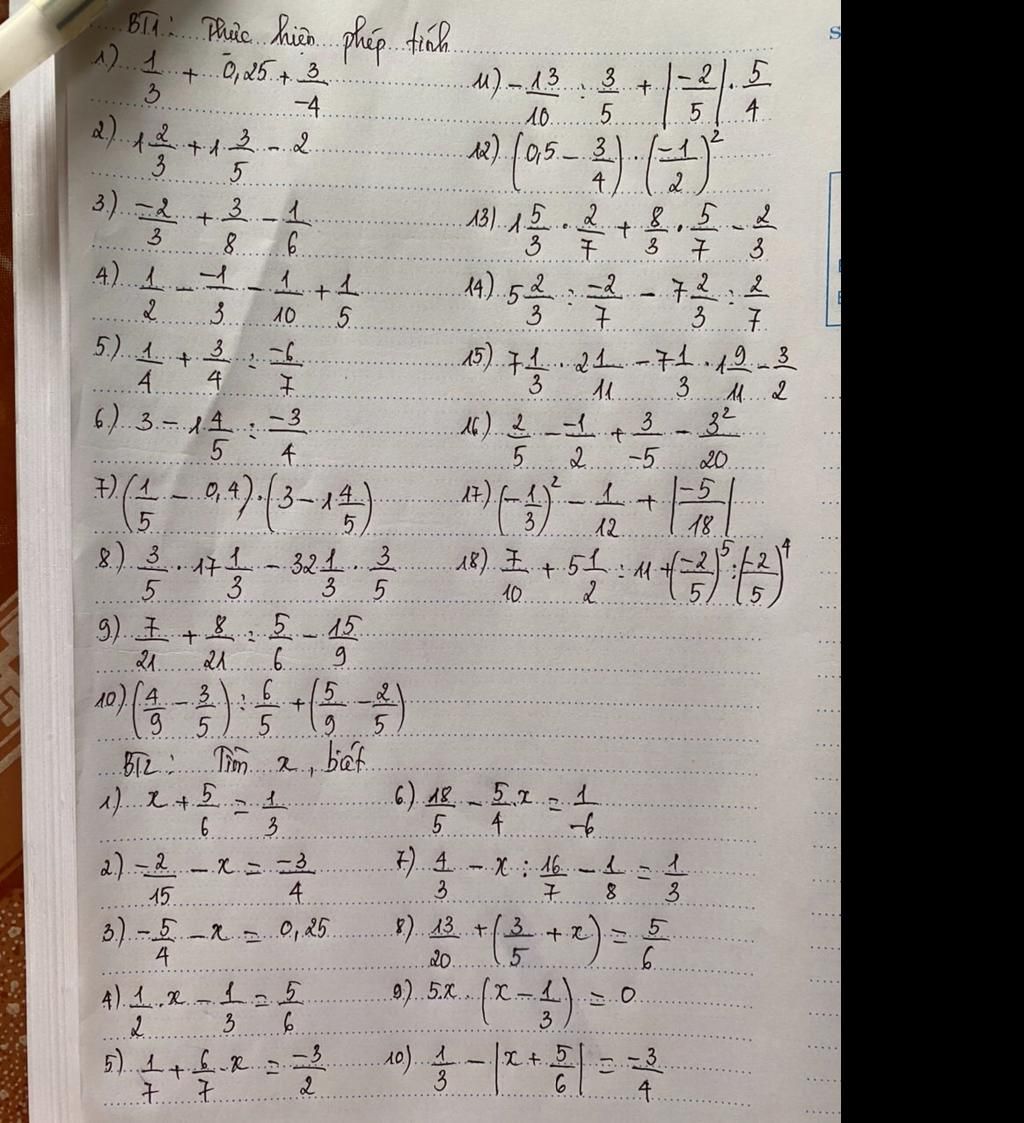 BT1: Thực hiện phép tính
1) 1/3 + 0,25 + 3/-4
2) 1 2/3 + 1 3/5 - 2
3) -2/3 + 3/8 - 1/6
4) 1/2 - -1/3 - 1/10 + 1/5
5) 1/4 + 3/4 : -6/7
6) 3 - 1 4/5 : -3/4
7) (1/5 - 0,4) . (3 - 1 4/5)
8) 3/5 . 17 1/3 - 32 1/3 . 3/5
9) 7/21 + 8/21 : 5/6 - 15/9
10) (4/9 - 3/5) : 6/5 + (5/9 - 2/5)
11) -13/10 : 3/5 + |-2/5| . 5/4
12) (0,5 - 3/4) . (-1/2)²
13) 1 5/3 . 2/7 + 8/3 . 5/7 - 2/3
14) 5 2/3 : -2/7 - 7 2/3 : 2/7
15) 7 1/3 . 2 1/11 - 7 1/3 . 1 9/11 - 3/2
16) 2/5 - -1/2 + 3/-5 - 3²/20
17) (-1/3)² - 1/12 + |-5/18|
18) 7/10 + 5 1/2 : 11 + (-2/5)⁵ : (-2/5)⁴
BT2: Tìm x, biết
1) x + 5/6 = 1/3
2) -2/15 - x = -3/4
3) -5/4 - x = 0,25
4) 1/2 . x - 1/3 = 5/6
5) 1/7 + 6/7 . x = -3/2
6) 18/5 - 5/4 . x = 1/-6
7) 4/3 - x : 16/7 - 1/8 = 1/3
8) 13/20 + (3/5 + x) = 5/6
9) 5x . (x - 1/3) = 0
10) 1/3 - |x + 5/6| = -3/4